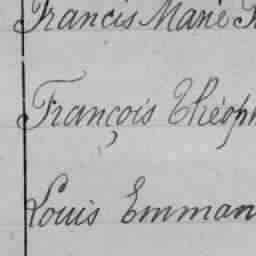 Francis Marie
François Théoph
Louis Emman